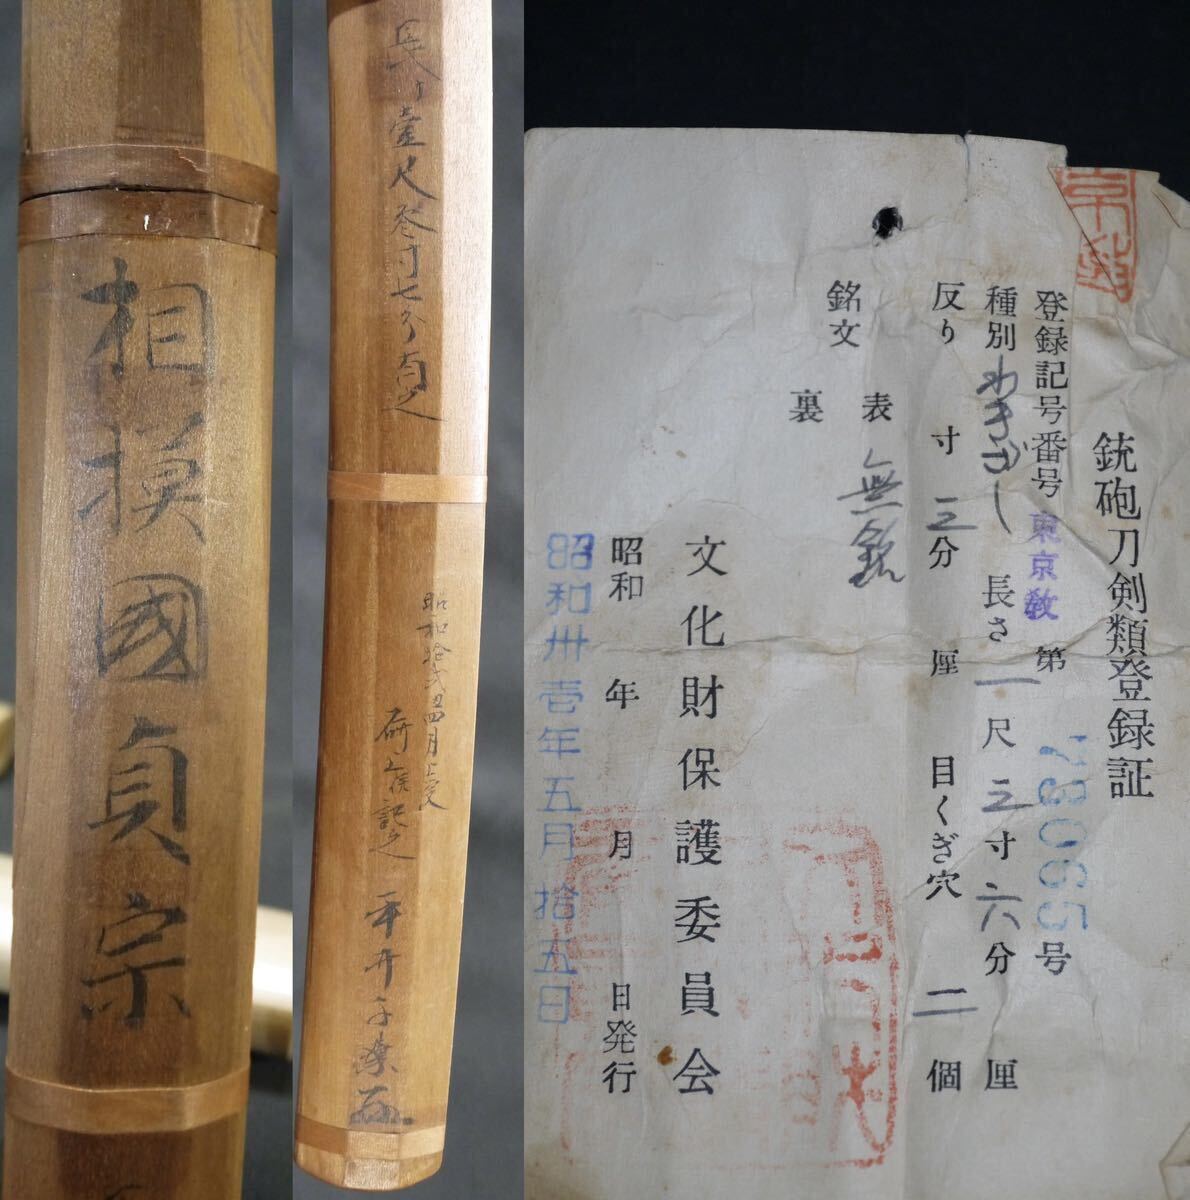 相摸國貞宗
長サ壹尺参寸七分有之
昭和拾弐丑四月上受
研上侯記之 平井千葉
銃砲刀剣類登録証
登録記号番号 東京教 第 78065 号
種別 わきざし 長さ 一尺三寸六分 厘
反り 寸三分 厘 目くぎ穴 二個
銘文 表 無銘
裏
文化財保護委員会
昭和 年 月 日発行
昭和卅壱年五月拾五日